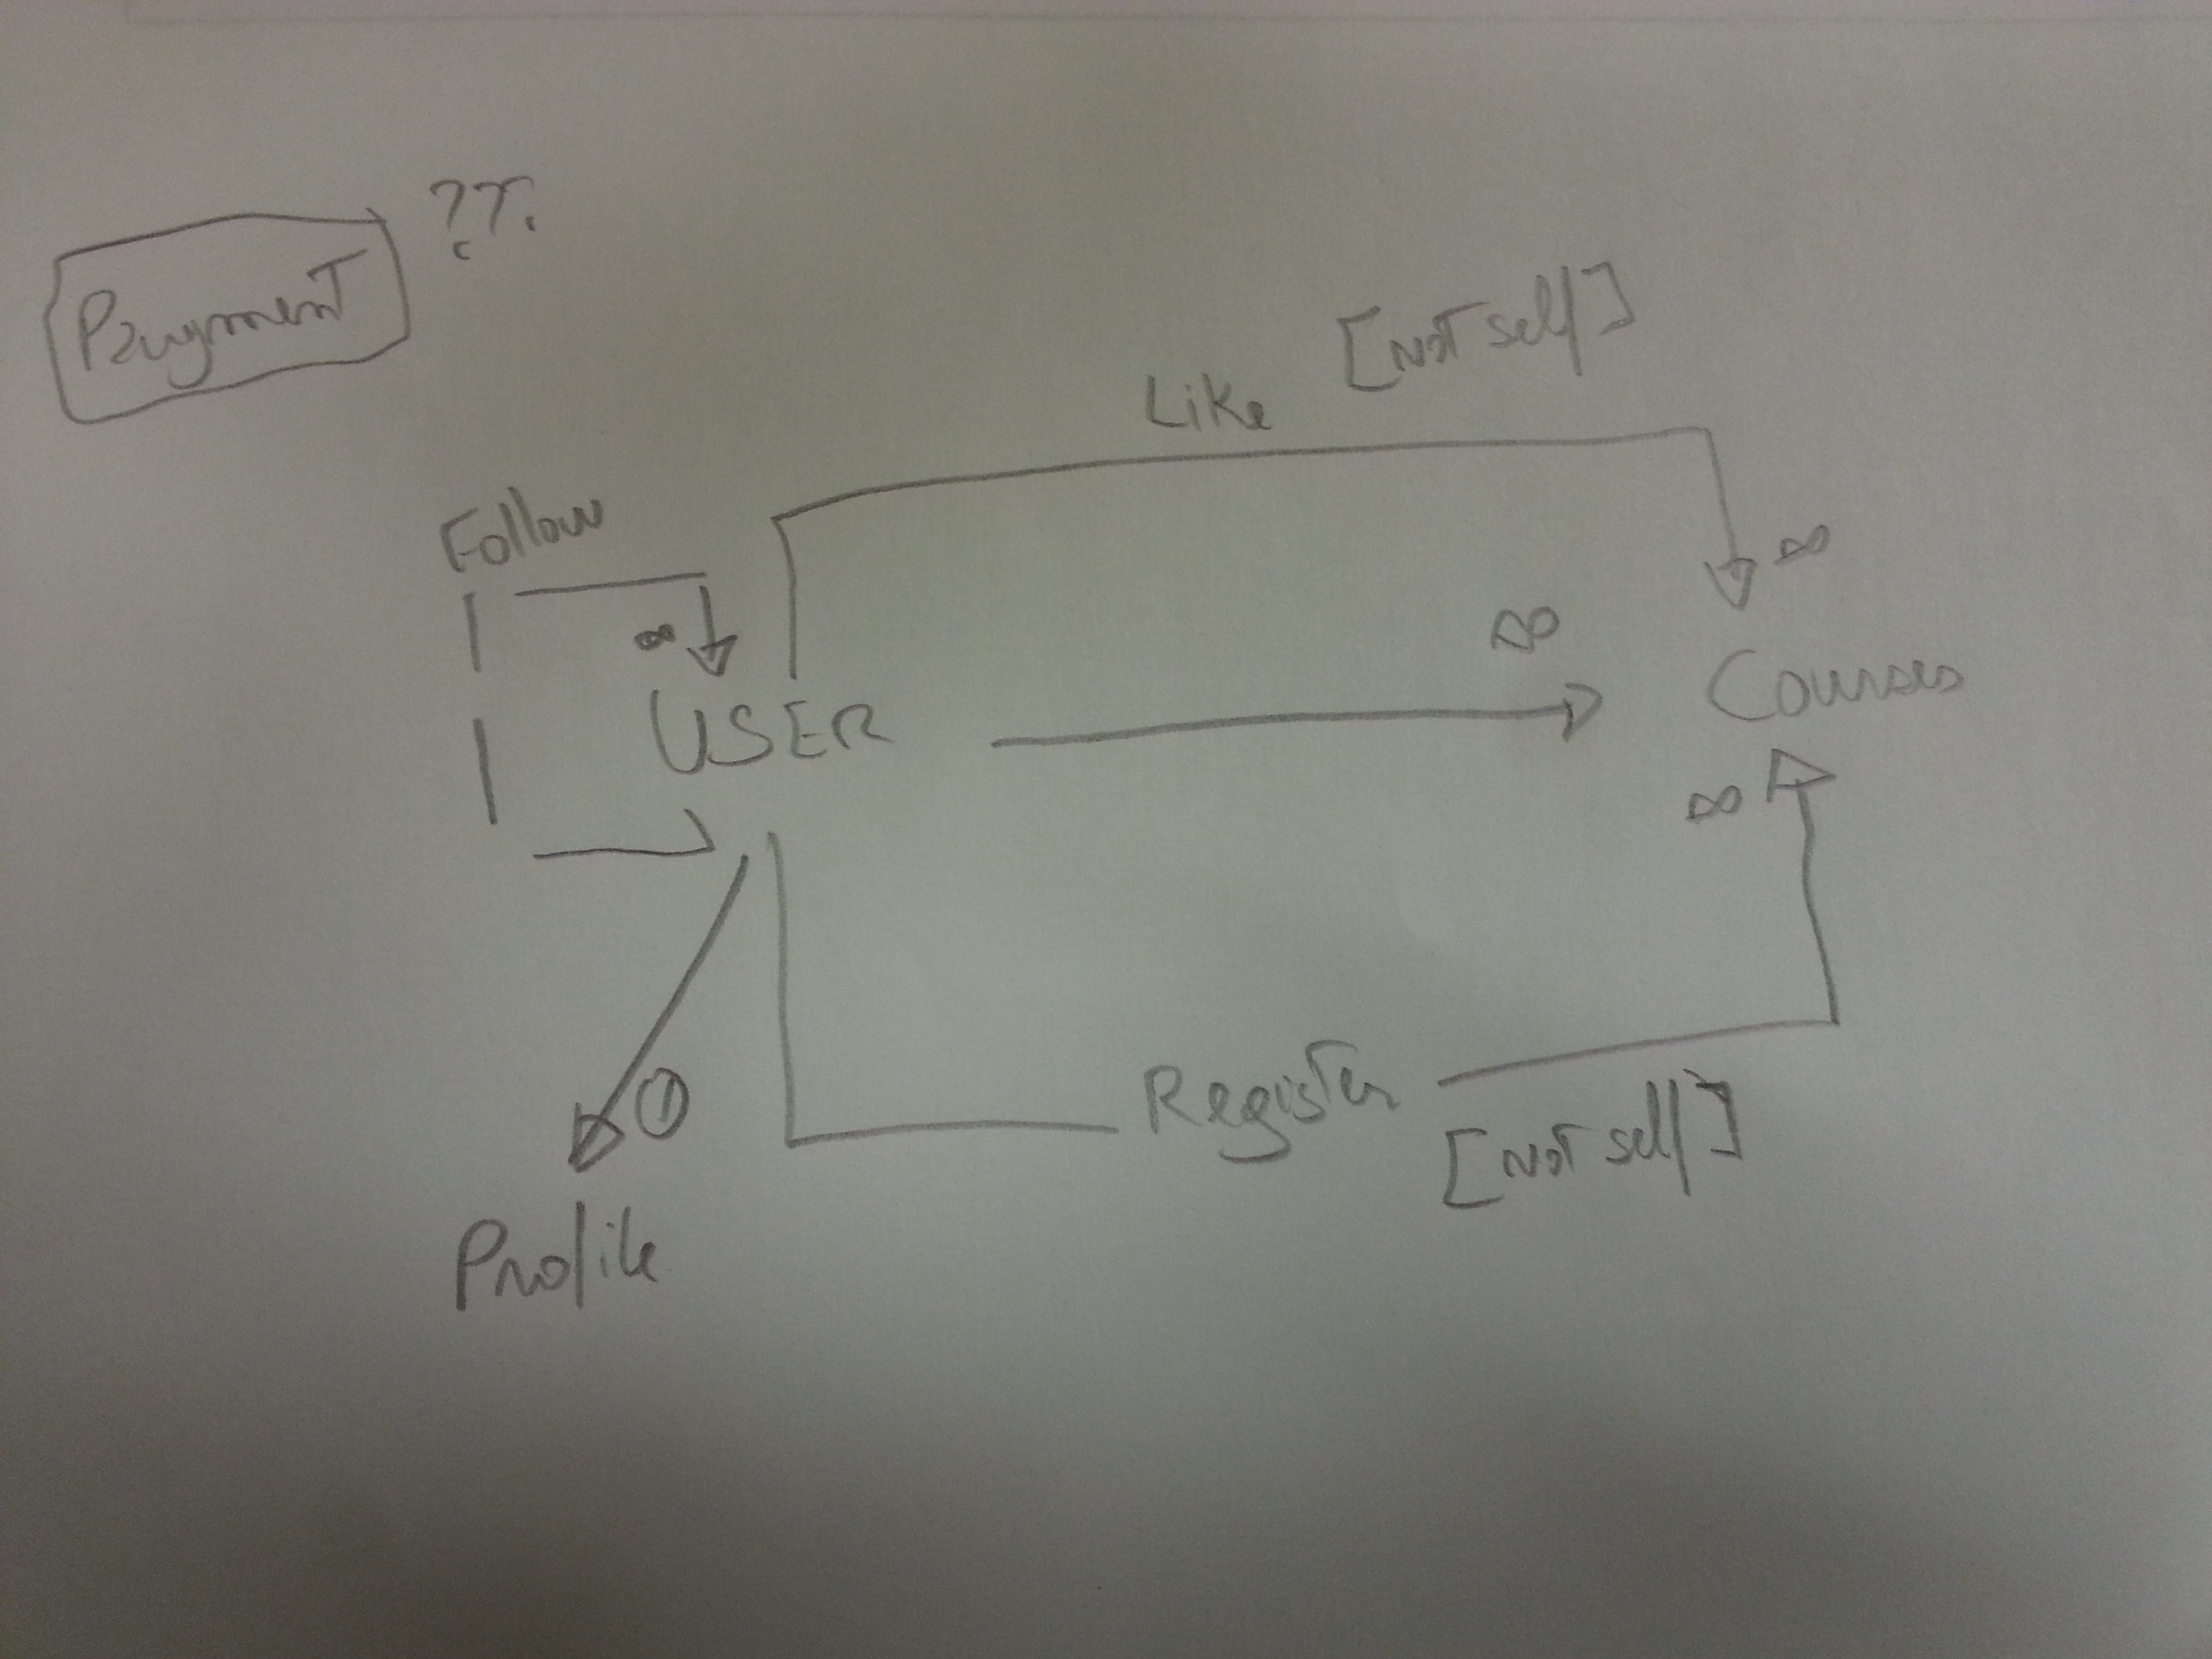 ??
Payment
Like [Not self]
Follow
∞
∞
∞
USER
Courses
∞
1
Register
[Not self]
Profile